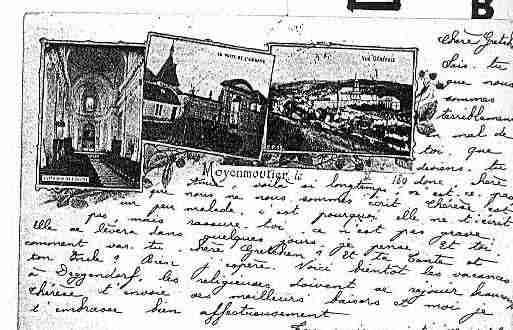 B
Chère Gretchen
Sais-tu
que nous
sommes
terriblement
en mal de
toi, que
deviens-tu
LA PORTE DE L'ABBAYE
VUE GÉNÉRALE
Moyenmoutier le 189
donc, chère
voilà si longtemps, n'est-ce pas
que nous ne nous sommes écrit Thérèse est
un peu malade, c'est pourquoi elle ne t'écrit
pas, mais rassure toi, ce n'est pas grave.
Elle se lèvera dans quelques jours, je pense. Et toi
comment vas-tu chère Gretchen? Et ta Tante et
ton Oncle? Bien j'espère. Voici bientôt les vacances
à Deggendorf, les religieuses doivent se réjouir
Thérèse t'envoie ses meilleurs baisers et moi je
t'embrasse bien affectueusement